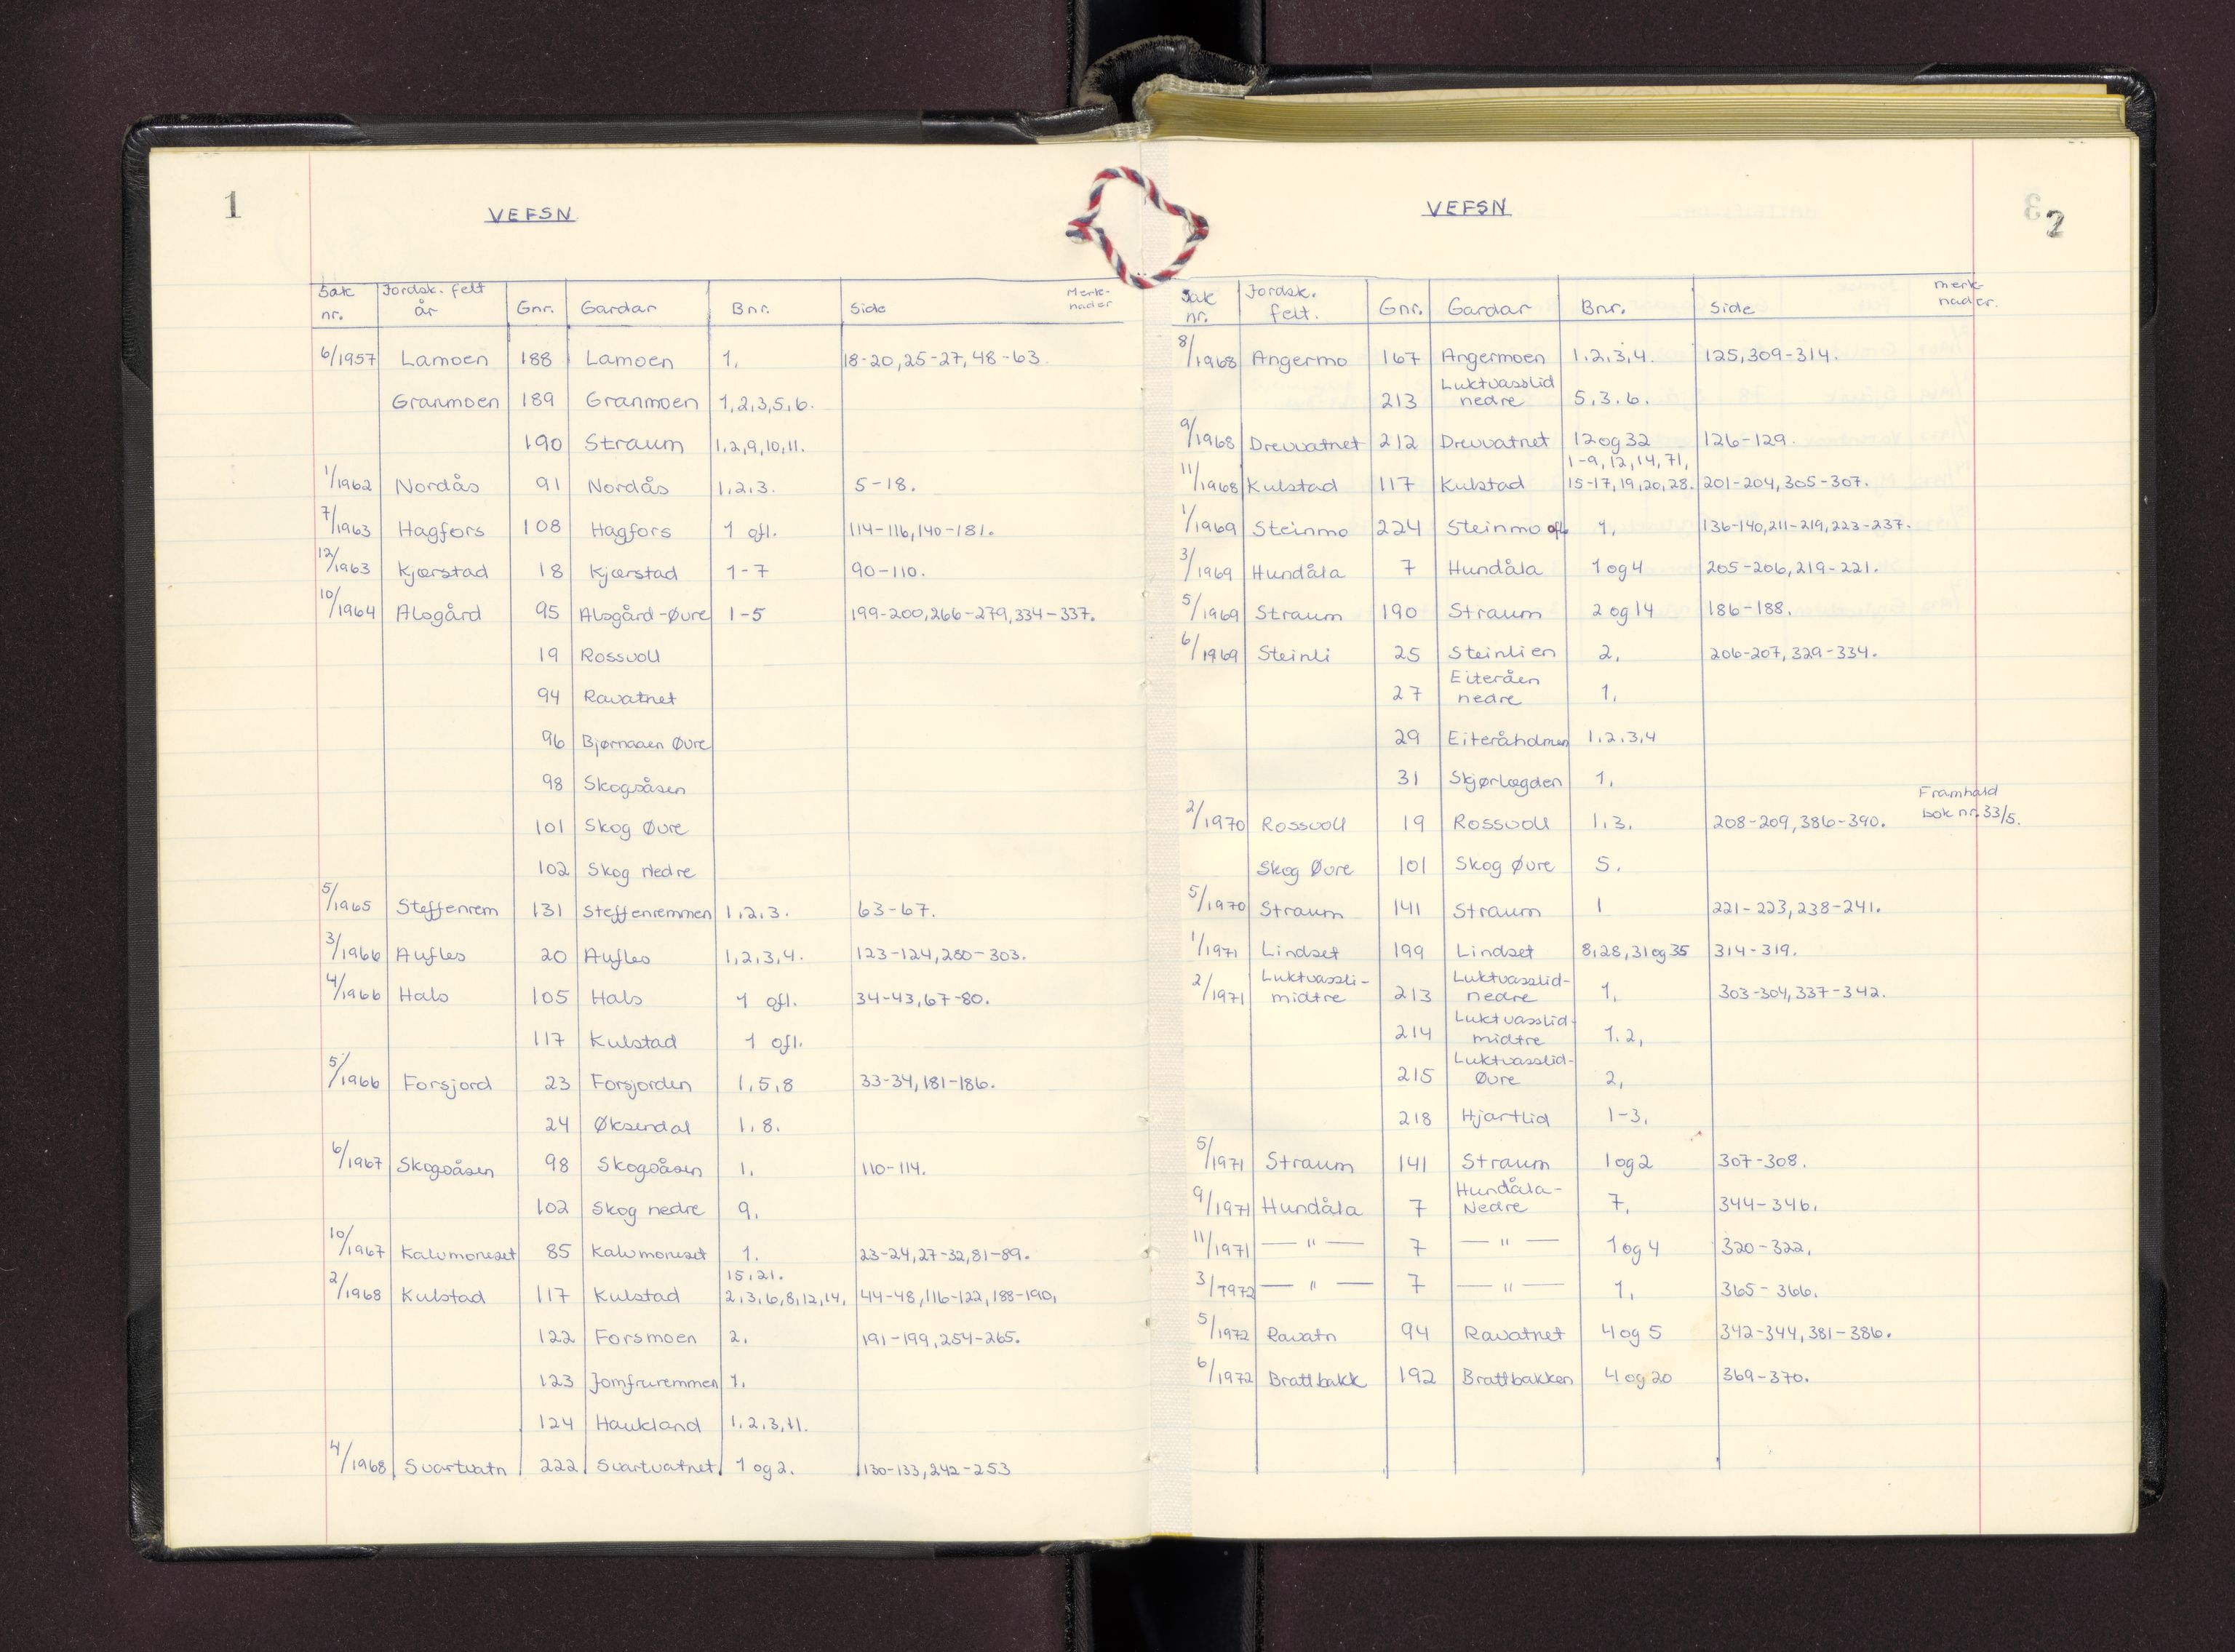 1
VEFSN
Sak nr. Jordsk. felt år Gnr. Gardar Bnr. Side Merk-nader
6/1957 Lamoen 188 Lamoen 1, 18-20,25-27,48-63.
Granmoen 189 Granmoen 1,2,3,5,6.
190 Straum 1,2,9,10,11.
1/1962 Nordås 91 Nordås 1,2,3. 5-18.
7/1963 Hagfors 108 Hagfors 1 ofl. 114-116,140-181.
12/1963 Kjærstad 18 Kjærstad 1-7 90-110.
10/1964 Alsgård 95 Alsgård-Øvre 1-5 199-200,266-279,334-337.
19 Rossvoll
94 Ravatnet
96 Bjørnaaen Øvre
98 Skogsåsen
101 Skog Øvre
102 Skog Nedre
5/1965 Steffenrem 131 Steffenremmen 1,2,3. 63-67.
3/1966 Aufles 20 Aufles 1,2,3,4. 123-124,280-303.
4/1966 Hals 105 Hals 1 ofl. 34-43,67-80.
117 Kulstad 1 ofl.
5/1966 Forsjord 23 Forsjorden 1,5,8 33-34,181-186.
24 Øksendal 1,8.
6/1967 Skogsåsen 98 Skogsåsen 1. 110-114.
102 Skog nedre 9.
10/1967 Kalvmoneset 85 Kalvmoneset 1. 23-24,27-32,81-89.
15,21.
2/1968 Kulstad 117 Kulstad 2,3,6,8,12,14, 44-48,116-122,188-190,
122 Forsmoen 2. 191-199,254-265.
123 Jomfruremmen 1.
124 Haukland 1,2,3,11.
4/1968 Svartvatn 222 Svartvatnet 1 og 2. 130-133,242-253
2
VEFSN
Sak nr. Jordsk. felt. Gnr. Gardar Bnr. Side merk-nader.
8/1968 Angermo 167 Angermoen 1,2,3,4. 125,309-314.
Luktvasslid
213 nedre 5,3.6.
9/1968 Drevvatnet 212 Drevvatnet 12 og 32 126-129.
1-9,12,14,71,
11/1968 Kulstad 117 Kulstad 15-17,19,20,28. 201-204,305-307.
1/1969 Steinmo 224 Steinmo ofl. 1, 136-140,211-219,223-237.
3/1969 Hundåla 7 Hundåla 1 og 4 205-206,219-221.
5/1969 Straum 190 Straum 2 og 14 186-188.
6/1969 Steinli 25 Steinlien 2, 206-207,329-334.
Eiteråen
27 nedre 1,
29 Eiteråholmen 1,2,3,4
31 Skjørlægden 1,
Framhald
bok nr. 33/5.
2/1970 Rossvoll 19 Rossvoll 1,3. 208-209,386-390.
Skog Øvre 101 Skog Øvre 5.
5/1970 Straum 141 Straum 1 221-223,238-241.
1/1971 Lindset 199 Lindset 8,28,31 og 35 314-319.
Luktvassli- Luktvasslid-
2/1971 midtre 213 nedre 1, 303-304,337-342.
Luktvasslid-
214 midtre 1.2,
Luktvasslid-
215 Øvre 2,
218 Hjartlid 1-3,
5/1971 Straum 141 Straum 1 og 2 307-308.
Hundåla-
9/1971 Hundåla 7 Nedre 7, 344-346.
11/1971 — " — 7 — " — 1 og 4 320-322,
3/1972 — " — 7 — " — 1, 365-366.
5/1972 Ravatn 94 Ravatnet 4 og 5 342-344,381-386.
6/1972 Brattbakk 192 Brattbakken 4 og 20 369-370.